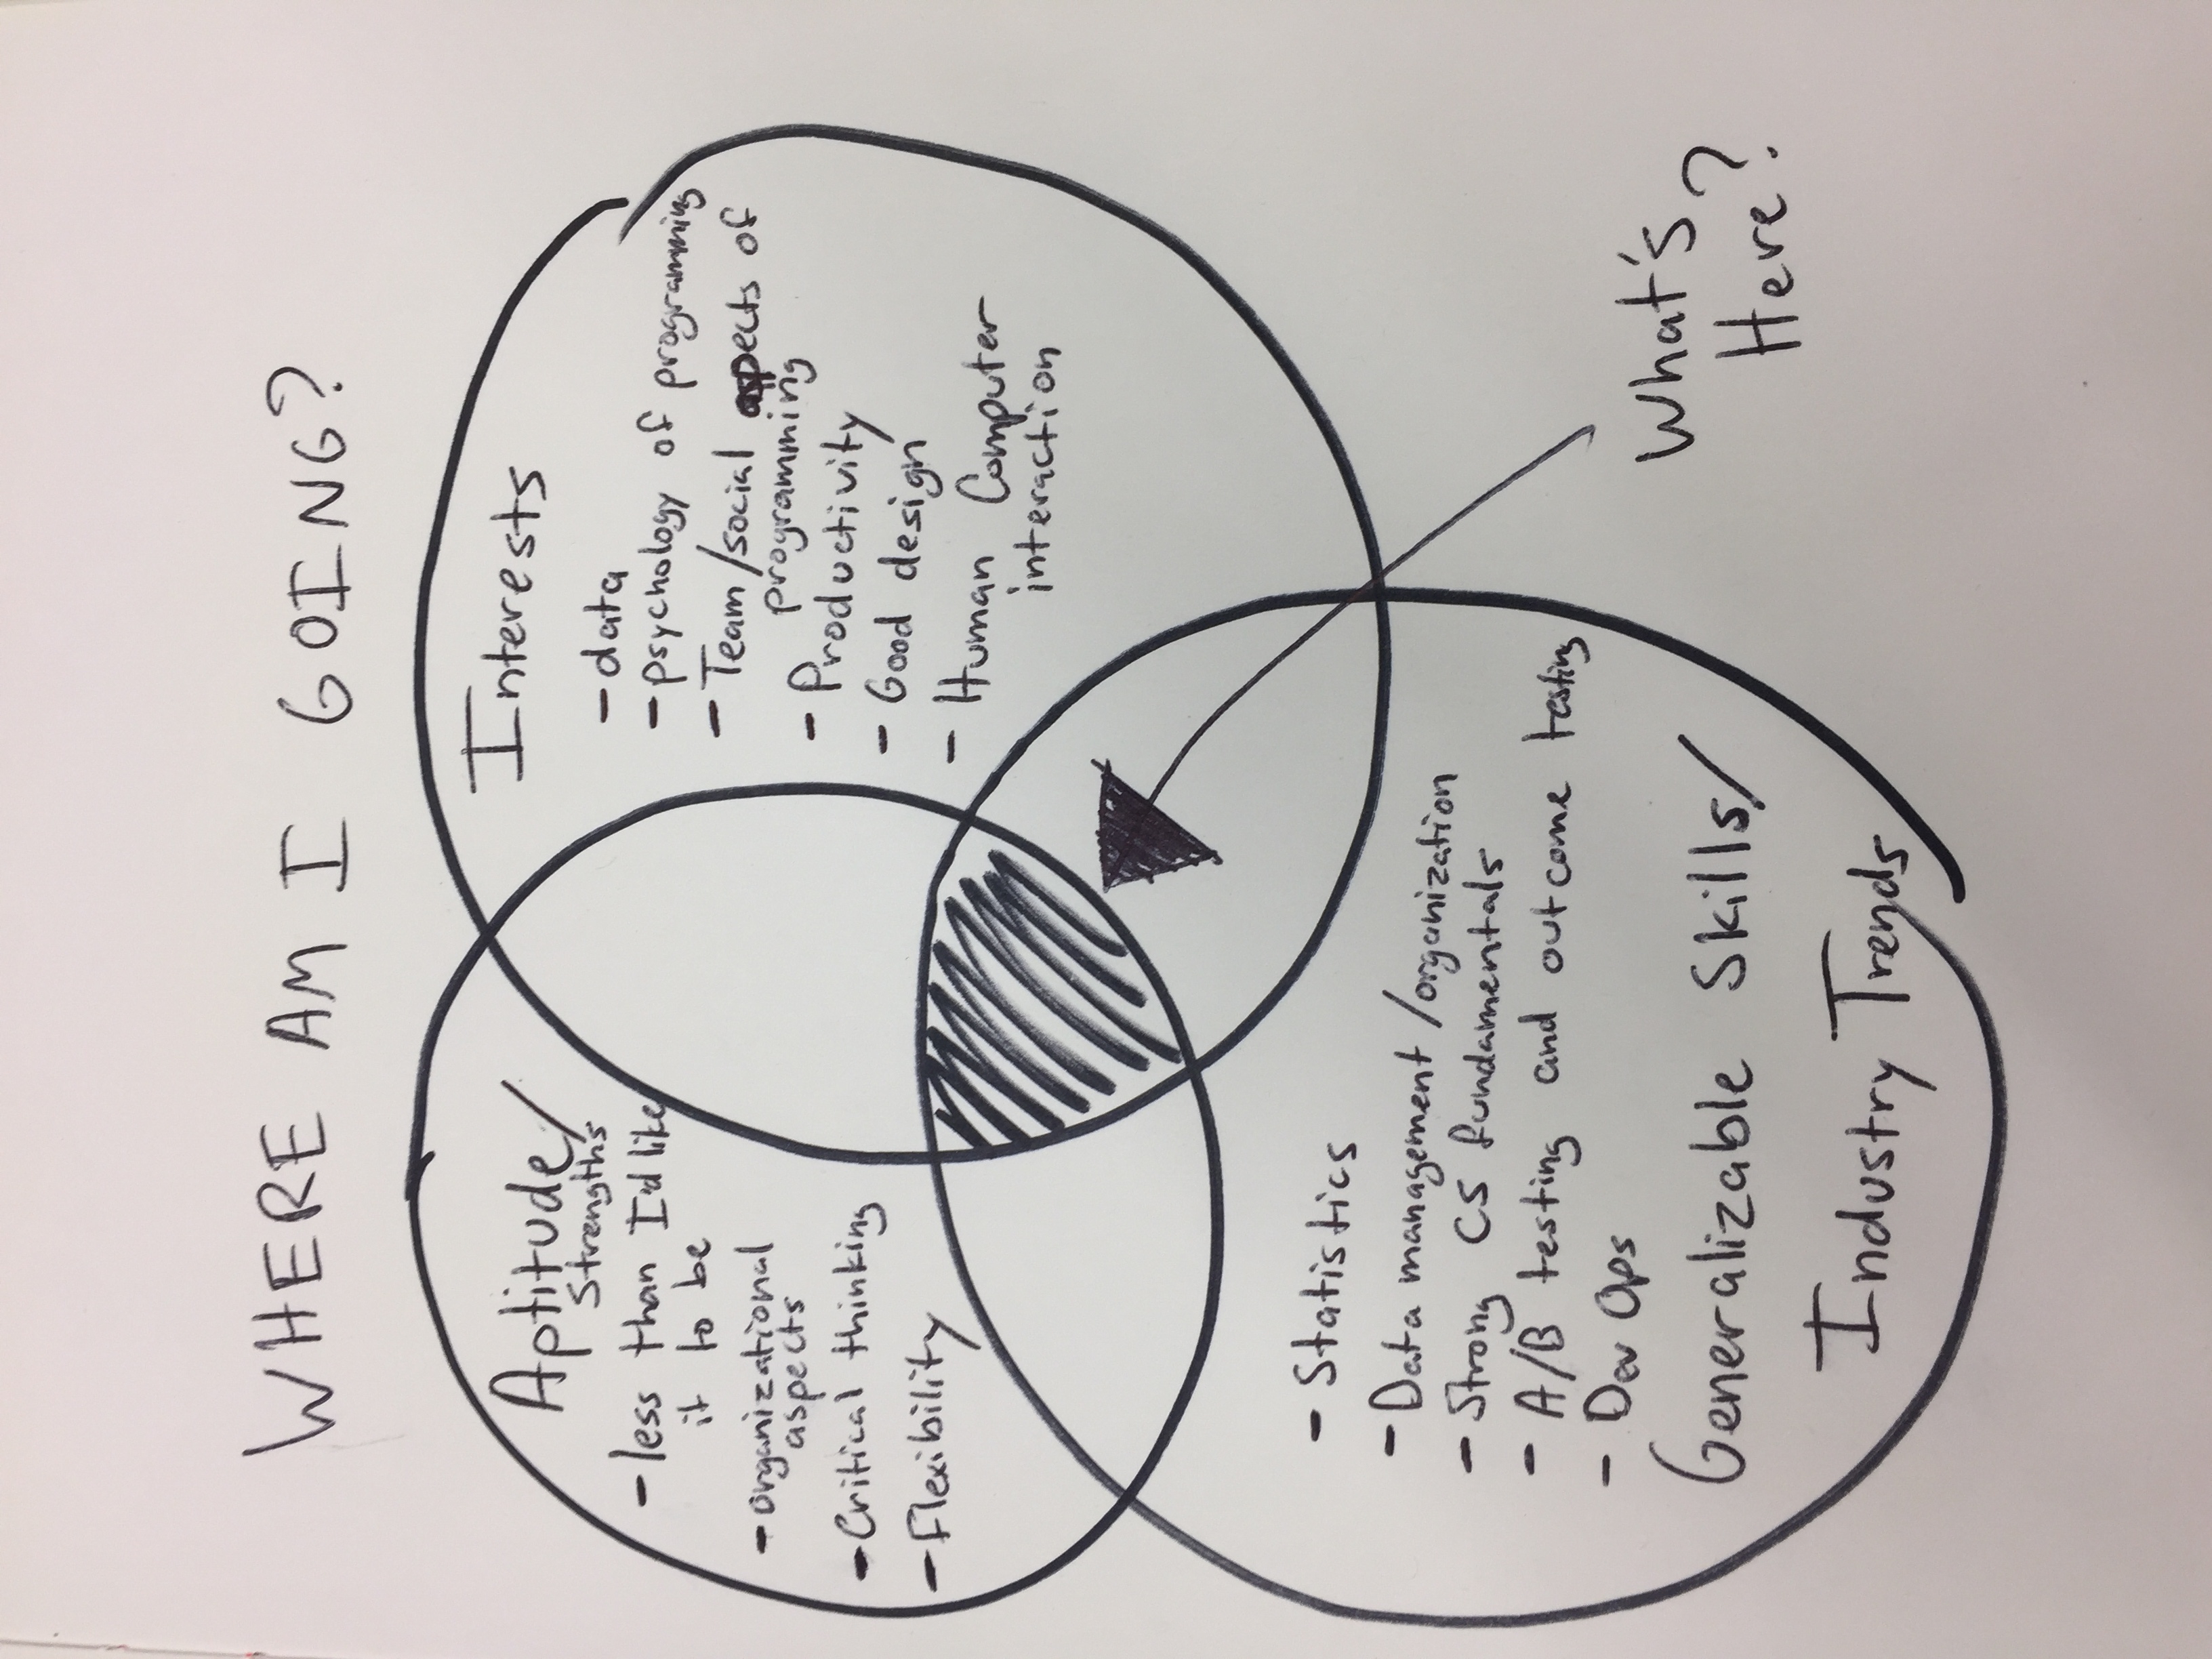 WHERE AM I GOING?
Aptitude/
Strengths
- less than I'd like
it to be
- organizational
aspects
- Critical thinking
- Flexibility
Interests
- data
- psychology of programming
- Team/social aspects of
programming
- Productivity
- Good design
- Human Computer
interaction
- Statistics
- Data management/organization
- Strong CS fundamentals
- A/B testing and outcome testing
- Dev Ops
Generalizable Skills/
Industry Trends
What's
Here?